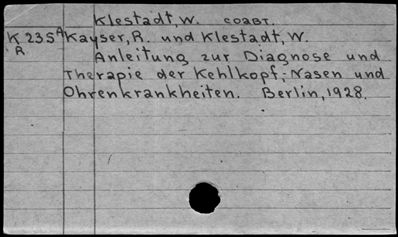 Klestadt, W. соавт.
K 235 A Kayser, R. und Klestadt, W.
R Anleitung zur Diagnose und
Therapie der Kehlkopf-, Nasen und
Ohrenkrankheiten. Berlin, 1928.